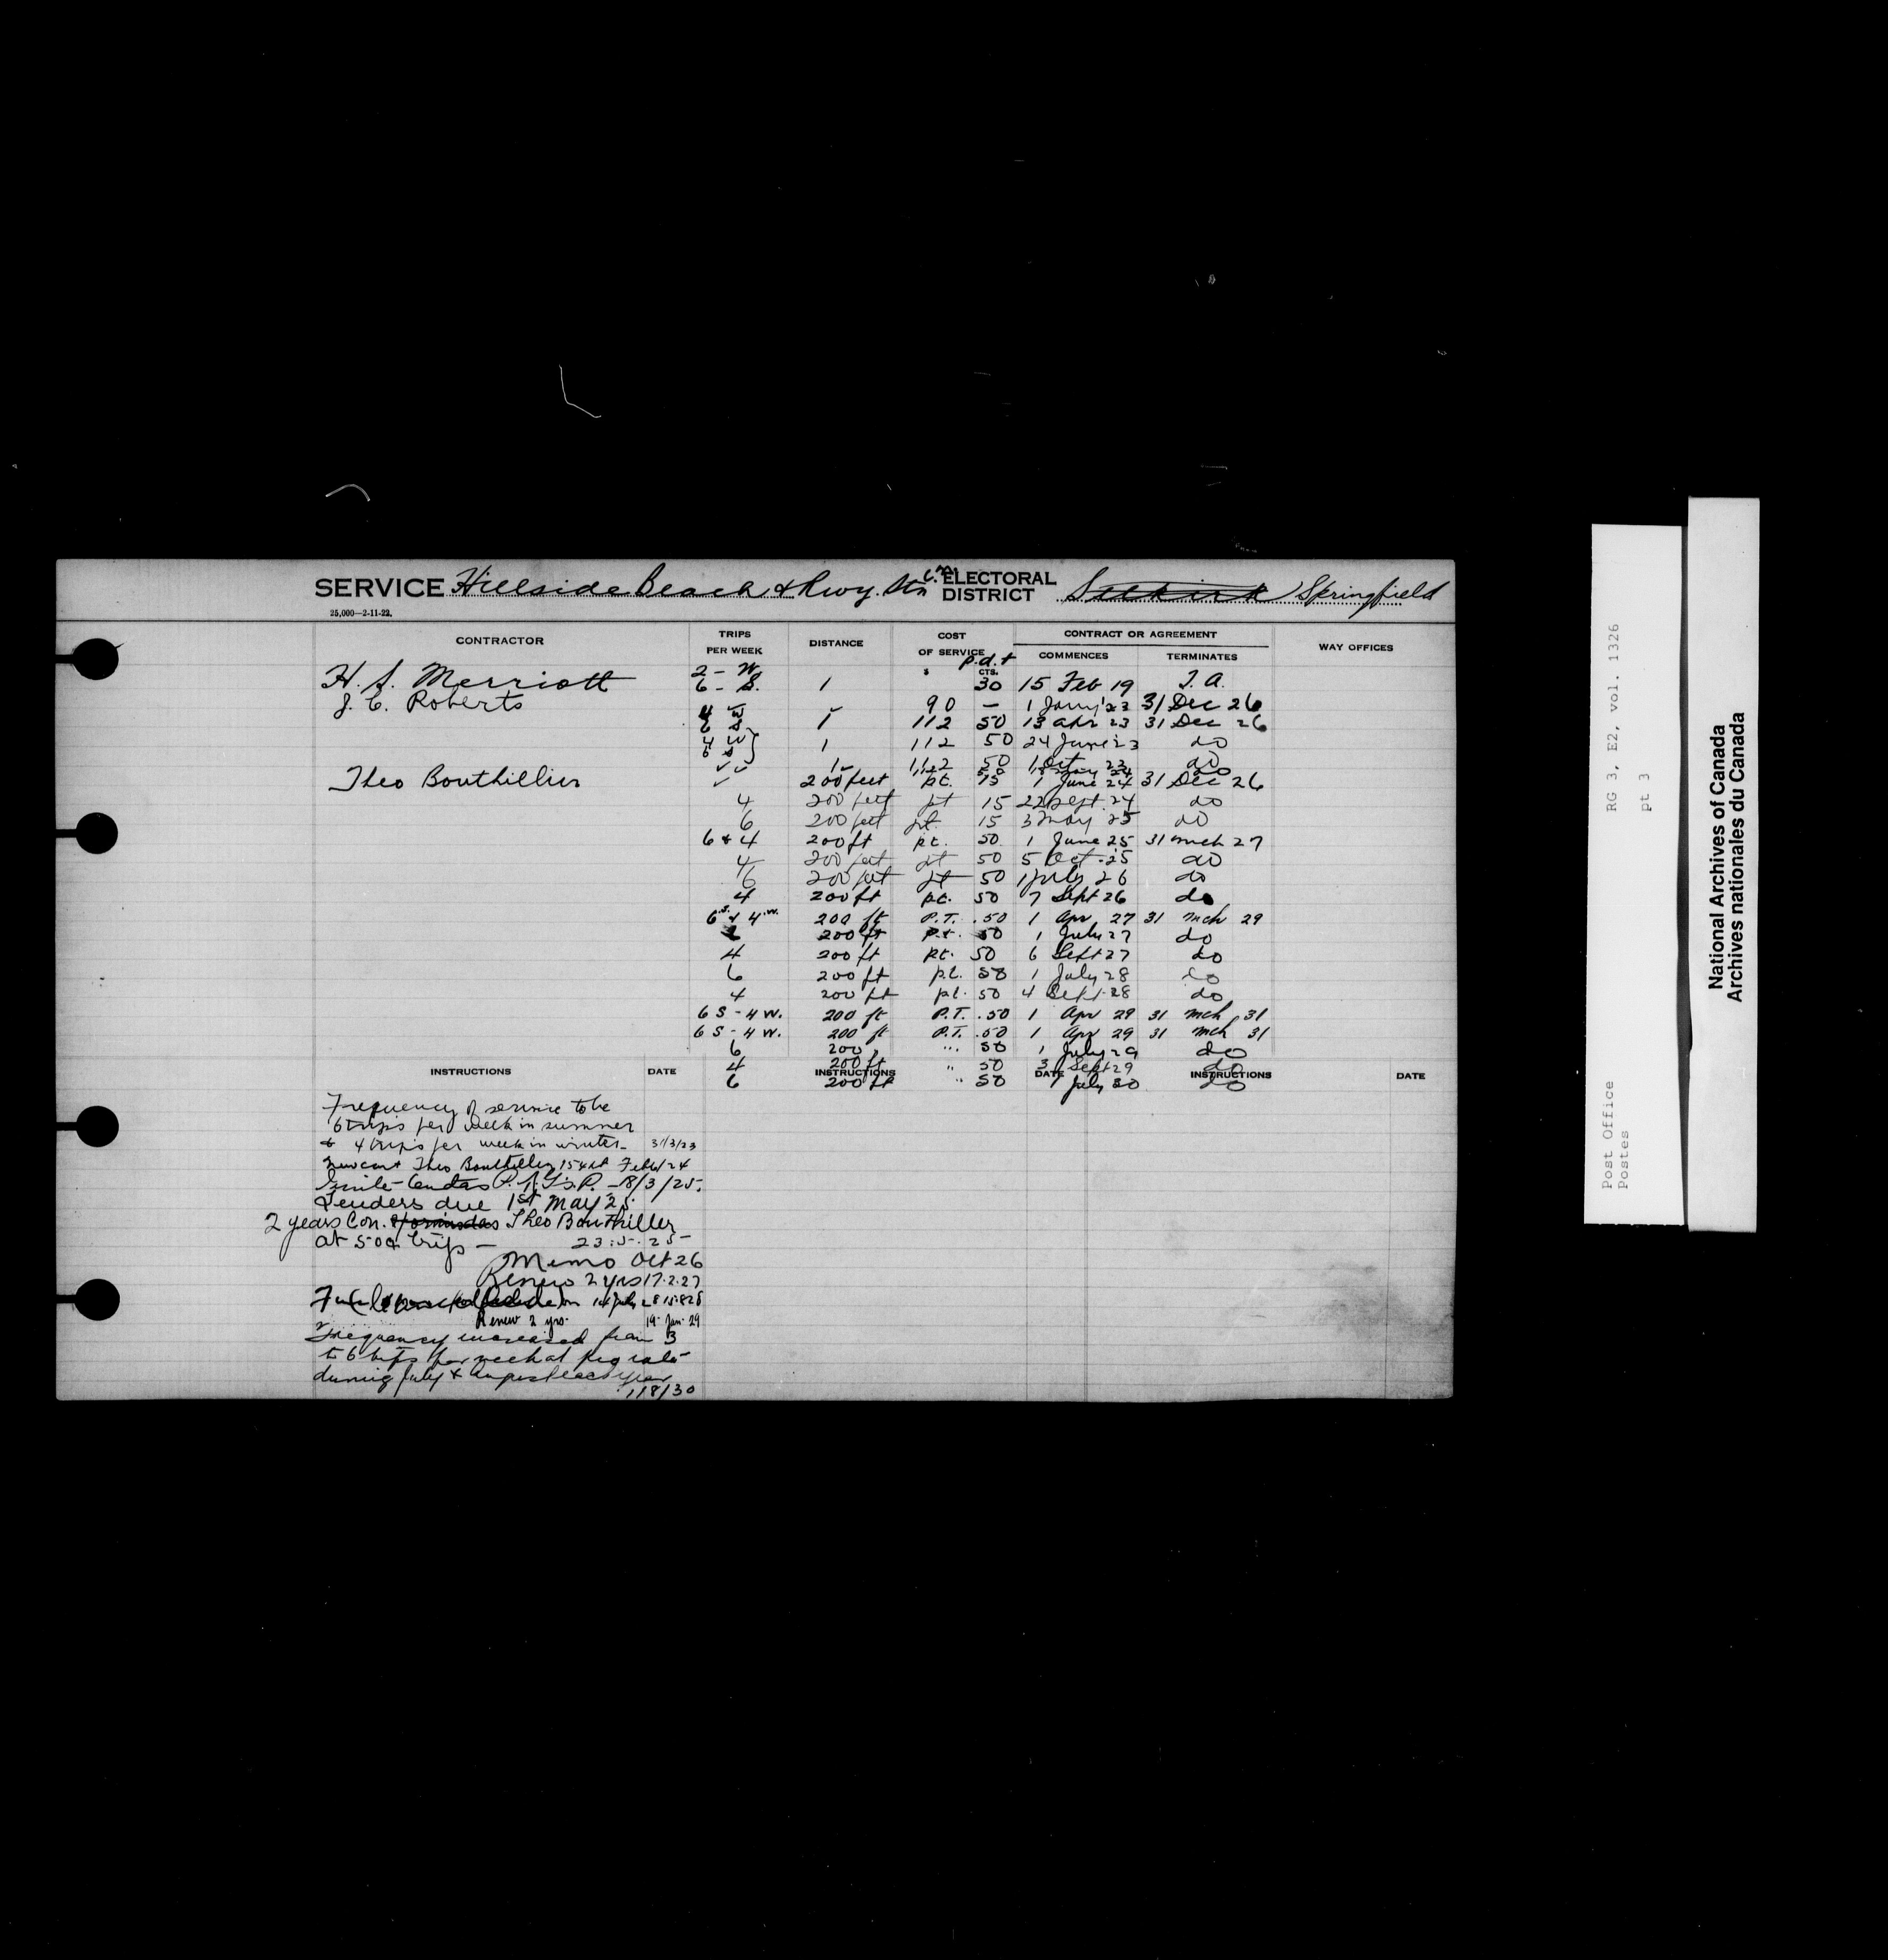 SERVICE Hillside Beach & Rwy. Stn C.N. ELECTORAL DISTRICT Selkirk Springfield
25,000—2-11-22.
CONTRACTOR TRIPS PER WEEK DISTANCE COST OF SERVICE CONTRACT OR AGREEMENT WAY OFFICES
$ CTS. COMMENCES TERMINATES
p.d.t
H. S. Merriott 2 - W. 6 - S. 1 30 15 Feb 19 T.A.
J. C. Roberts 90 — 1 Jany '23 31 Dec 26
4 W 6 S 1 112 50 13 apr 23 31 Dec 26
4 W 6 S 1 112 50 24 June 23 do
112 50 1 Oct 23 do
Theo Bouthillier 200 feet pt. 15 1 June 24 31 Dec 26
4 200 feet pt 15 22 Sept. 24 do
6 200 feet pt. 15 3 May 25 do
6 & 4 200 ft pt. 50 1 June 25 31 mch 27
4 200 feet pt 50 5 Oct. 25 do
6 200 feet pt 50 1 July 26 do
4 200 ft pt. 50 7 Sept 26 do
6 S. & 4 W. 200 ft P.T. .50 1 Apr 27 31 mch 29
200 ft p.t. 50 1 July 27 do
4 200 ft pt. 50 6 Sept 27 do
6 200 ft p.t. 50 1 July 28 do
4 200 ft pt. 50 4 Sept. 28 do
6 S - 4 W. 200 ft P.T. .50 1 Apr 29 31 mch 31
6 S - 4 W. 200 ft P.T. .50 1 Apr 29 31 mch 31
6 200 " " 50 1 July 29 do
4 200 ft " 50 3 Sept 29 do
6 200 ft " 50 1 July 30 do
INSTRUCTIONS DATE INSTRUCTIONS DATE INSTRUCTIONS DATE
Frequency of service to be
6 trips per week in summer
& 4 trips per week in winter - 31/3/23
New cont Theo Bouthillier 15 Feb 24
18/3/25.
Tenders due 1st May 25.
2 years Con. Hormisdas Theo Bouthillier
at 50¢ trip - 23.5.25-
Memo Oct 26
Renew 2 yrs 17.2.27
Renew 2 yrs. 19 Jan. 29
Frequency increased from 3
to 6 trips per week at pro rata
during July & August each year
1/8/30
National Archives of Canada
Archives nationales du Canada
RG 3, E2, vol. 1326
pt 3
Post Office
Postes